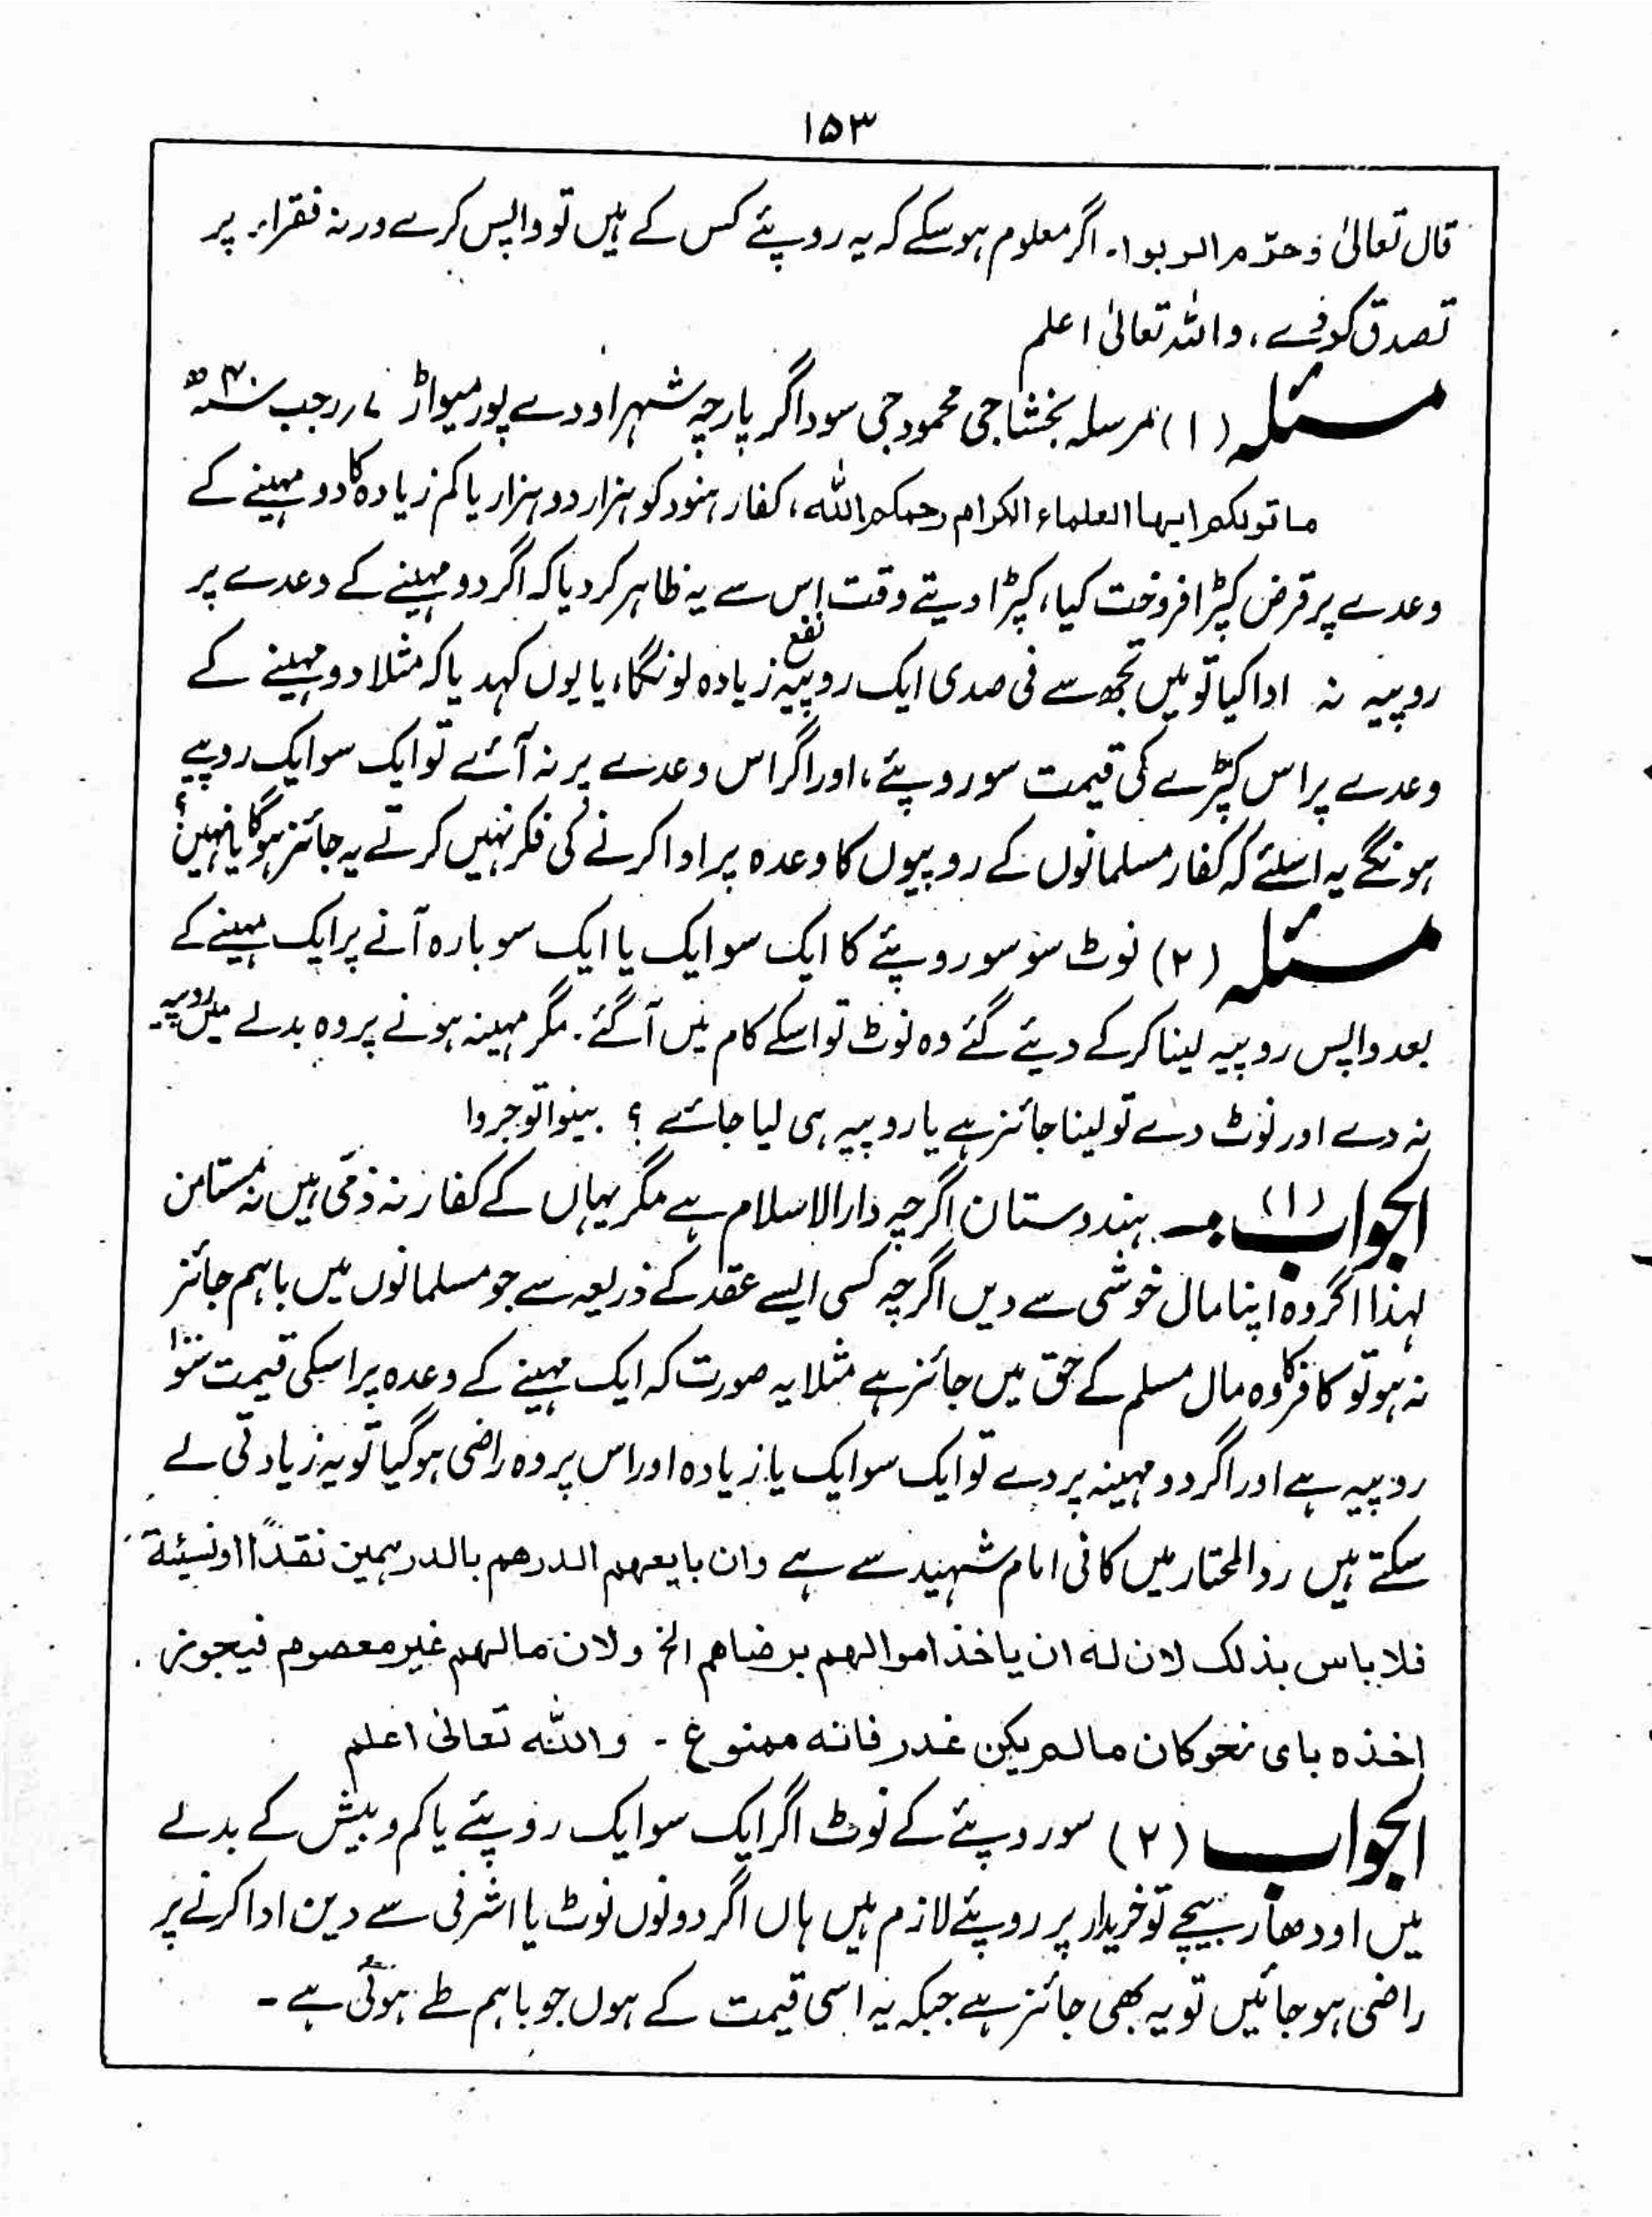 ۱۵۳
قال تعالیٰ وحرّم الربوا۔ اگر معلوم ہوسکے کہ یہ روپئے کس کے ہیں تو واپس کرے ورنہ فقراء پر
تصدق کردے، واللہ تعالیٰ اعلم
مسئلہ (۱) مرسلہ بخشا جی محمود جی سوداگر پارچہ شہر اودے پور میواڑ ۷ رجب
ما قولکم ایہا العلماء الکرام رحمکم اللہ، کفار ہنود کو ہزار دو ہزار یا کم زیادہ کا دو مہینے کے
وعدے پر قرض کپڑا فروخت کیا، کپڑا دیتے وقت اس سے یہ ظاہر کردیا کہ اگر دو مہینے کے وعدے پر
روپیہ نہ ادا کیا تو میں تجھ سے فی صدی ایک روپیہ نفع زیادہ لونگا، یا یوں کہدیا کہ مثلا دو مہینے کے
وعدے پر اس کپڑے کی قیمت سو روپئے، اور اگر اس وعدے پر نہ آئے تو ایک سو ایک روپیے
ہونگے یہ اسلئے کہ کفار مسلمانوں کے روپیوں کا وعدہ پر ادا کرنے کی فکر نہیں کرتے یہ جائز ہوگا یا نہیں؟
مسئلہ (۲) نوٹ سو سو روپئے کا ایک سو ایک یا ایک سو بارہ آنے پر ایک مہینے کے
بعد واپس روپیہ لینا کرکے دیئے گئے وہ نوٹ تو اسکے کام میں آگئے۔ مگر مہینہ ہونے پر وہ بدلے میں روپیہ
نہ دے اور نوٹ دے تو لینا جائز ہے یا روپیہ ہی لیا جائے؟ بینوا توجروا
الجواب (۱) ہندوستان اگرچہ دارالاسلام ہے مگر یہاں کے کفار نہ ذمی ہیں نہ مستامن
لہذا اگر وہ اپنا مال خوشی سے دیں اگرچہ کسی ایسے عقد کے ذریعہ سے جو مسلمانوں میں باہم جائز
نہ ہو تو کافر کا وہ مال مسلم کے حق میں جائز ہے مثلا یہ صورت کہ ایک مہینے کے وعدہ پر اسکی قیمت سو ۱۰۰
روپیہ ہے اور اگر دو مہینہ پر دے تو ایک سو ایک یا زیادہ اور اس پر وہ راضی ہوگیا تو یہ زیادتی لے
سکتے ہیں ردالمحتار میں کافی امام شہید سے ہے وان بایعهم الدرهم بالدرہمین نقدًا او نسیئة
فلا باس بذلک لان له ان یاخذ اموالهم برضاهم الخ ولان مالهم غیر معصوم فیجوز
اخذه بای نحو کان مالم یکن غدر فانه ممنوع ۔ واللہ تعالیٰ اعلم
الجواب (۲) سو روپئے کے نوٹ اگر ایک سو ایک روپئے یا کم و بیش کے بدلے
میں اودھار بیچے تو خریدار پر روپئے لازم ہیں ہاں اگر دونوں نوٹ یا اشرفی سے دین ادا کرنے پر
راضی ہو جائیں تو یہ بھی جائز ہے جبکہ یہ اسی قیمت کے ہوں جو باہم طے ہوئی ہے ۔